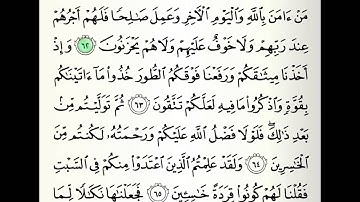 مَنْ ءَامَنَ بِٱللَّهِ وَٱلْيَوْمِ ٱلْءَاخِرِ وَعَمِلَ صَٰلِحًا فَلَهُمْ أَجْرُهُمْ
عِندَ رَبِّهِمْ وَلَا خَوْفٌ عَلَيْهِمْ وَلَا هُمْ يَحْزَنُونَ ٦٢ وَإِذْ
أَخَذْنَا مِيثَٰقَكُمْ وَرَفَعْنَا فَوْقَكُمُ ٱلطُّورَ خُذُوا۟ مَآ ءَاتَيْنَٰكُم
بِقُوَّةٍ وَٱذْكُرُوا۟ مَا فِيهِ لَعَلَّكُمْ تَتَّقُونَ ٦٣ ثُمَّ تَوَلَّيْتُم مِّنۢ
بَعْدِ ذَٰلِكَ ۖ فَلَوْلَا فَضْلُ ٱللَّهِ عَلَيْكُمْ وَرَحْمَتُهُۥ لَكُنتُم مِّنَ
ٱلْخَٰسِرِينَ ٦٤ وَلَقَدْ عَلِمْتُمُ ٱلَّذِينَ ٱعْتَدَوْا۟ مِنكُمْ فِى ٱلسَّبْتِ
فَقُلْنَا لَهُمْ كُونُوا۟ قِرَدَةً خَٰسِـِٔينَ ٦٥ فَجَعَلْنَٰهَا نَكَٰلًا لِّمَا